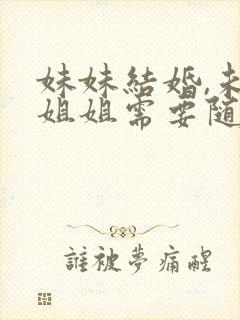 妹妹結婚,未
姐姐需要随
誰被夢痛醒